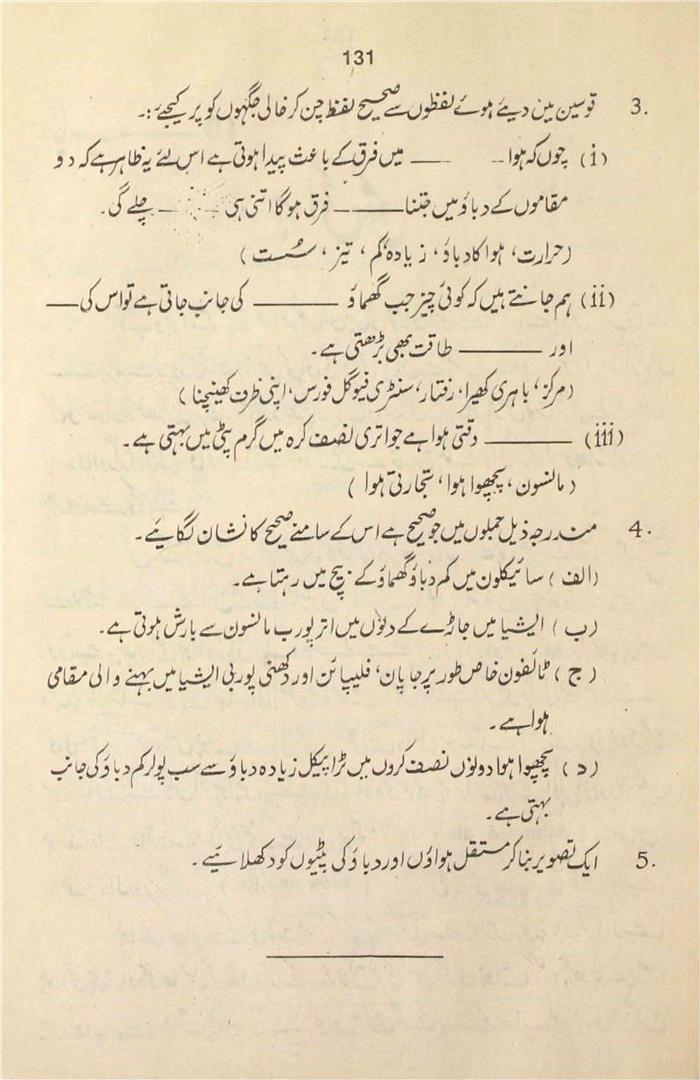 131
3. قوسین میں دیئے ہوئے لفظوں سے صحیح لفظ چن کر خالی جگہوں کو پر کیجیے:۔
(i) چوں کہ ہوا ـــــ میں فرق کے باعث پیدا ہوتی ہے اس لئے یہ ظاہر ہے کہ دو
مقاموں کے دباؤ میں جتنا ـــــ فرق ہوگا اتنی ہی ـــــ چلے گی۔
(حرارت، ہوا کا دباؤ، زیادہ، کم، تیز، سُست)
(ii) ہم جانتے ہیں کہ کوئی چیز جب گھماؤ ـــــ کی جانب جاتی ہے تو اس کی ـــــ
اور ـــــ طاقت بھی بڑھتی ہے۔
(مرکز، باہری گھیرا، رفتار، سنٹری فیوگل فورس، اپنی طرف کھینچنا)
(iii) ـــــ وقتی ہوا ہے جو اتری نصف کرہ میں گرم پٹی میں بہتی ہے۔
(مانسون، پچھوا ہوا، تجارتی ہوا)
4. مندرجہ ذیل جملوں میں جو صحیح ہے اس کے سامنے صحیح کا نشان لگائیے۔
(الف) سائیکلون میں کم دباؤ گھماؤ کے بیچ میں رہتا ہے۔
(ب) ایشیا میں جاڑے کے دنوں میں اتر پورب مانسون سے بارش ہوتی ہے۔
(ج) ٹائفون خاص طور پر جاپان، فلیپائن اور دکھنی پوربی ایشیا میں بہنے والی مقامی
ہوا ہے۔
(د) پچھوا ہوا دونوں نصف کروں میں ٹراپیکل زیادہ دباؤ سے سب پولر کم دباؤ کی جانب
بہتی ہے۔
5. ایک تصویر بنا کر مستقل ہواؤں اور دباؤ کی پیٹیوں کو دکھلائیے۔